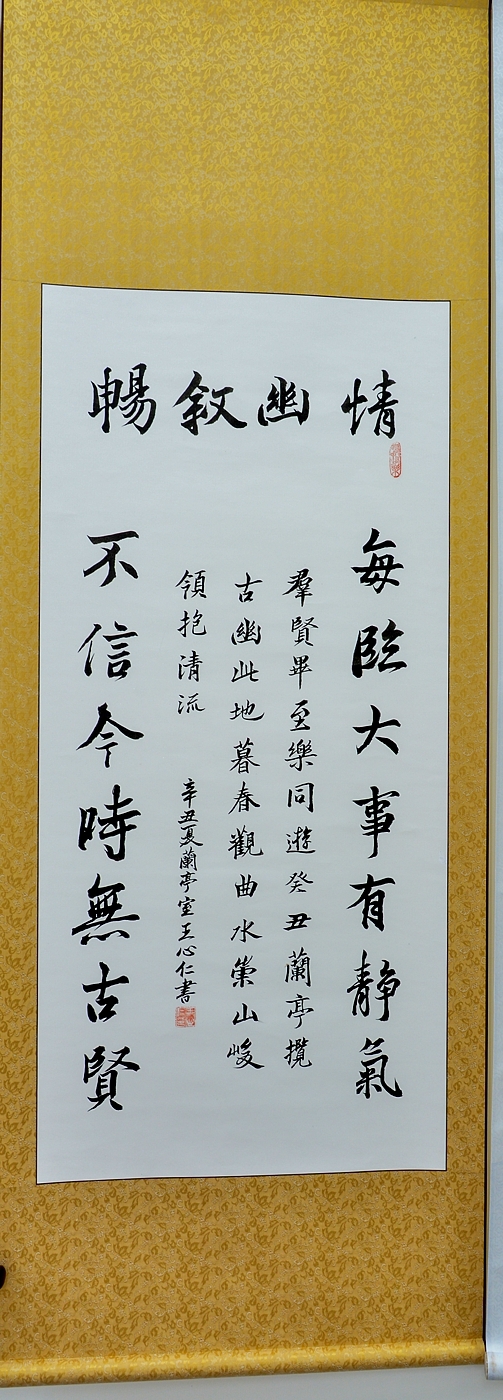 暢敘幽情
每臨大事有靜氣
羣賢畢至樂同遊癸丑蘭亭攬
古幽此地暮春觀曲水崇山峻
領抱清流
辛丑夏蘭亭室王心仁書
不信今時無古賢